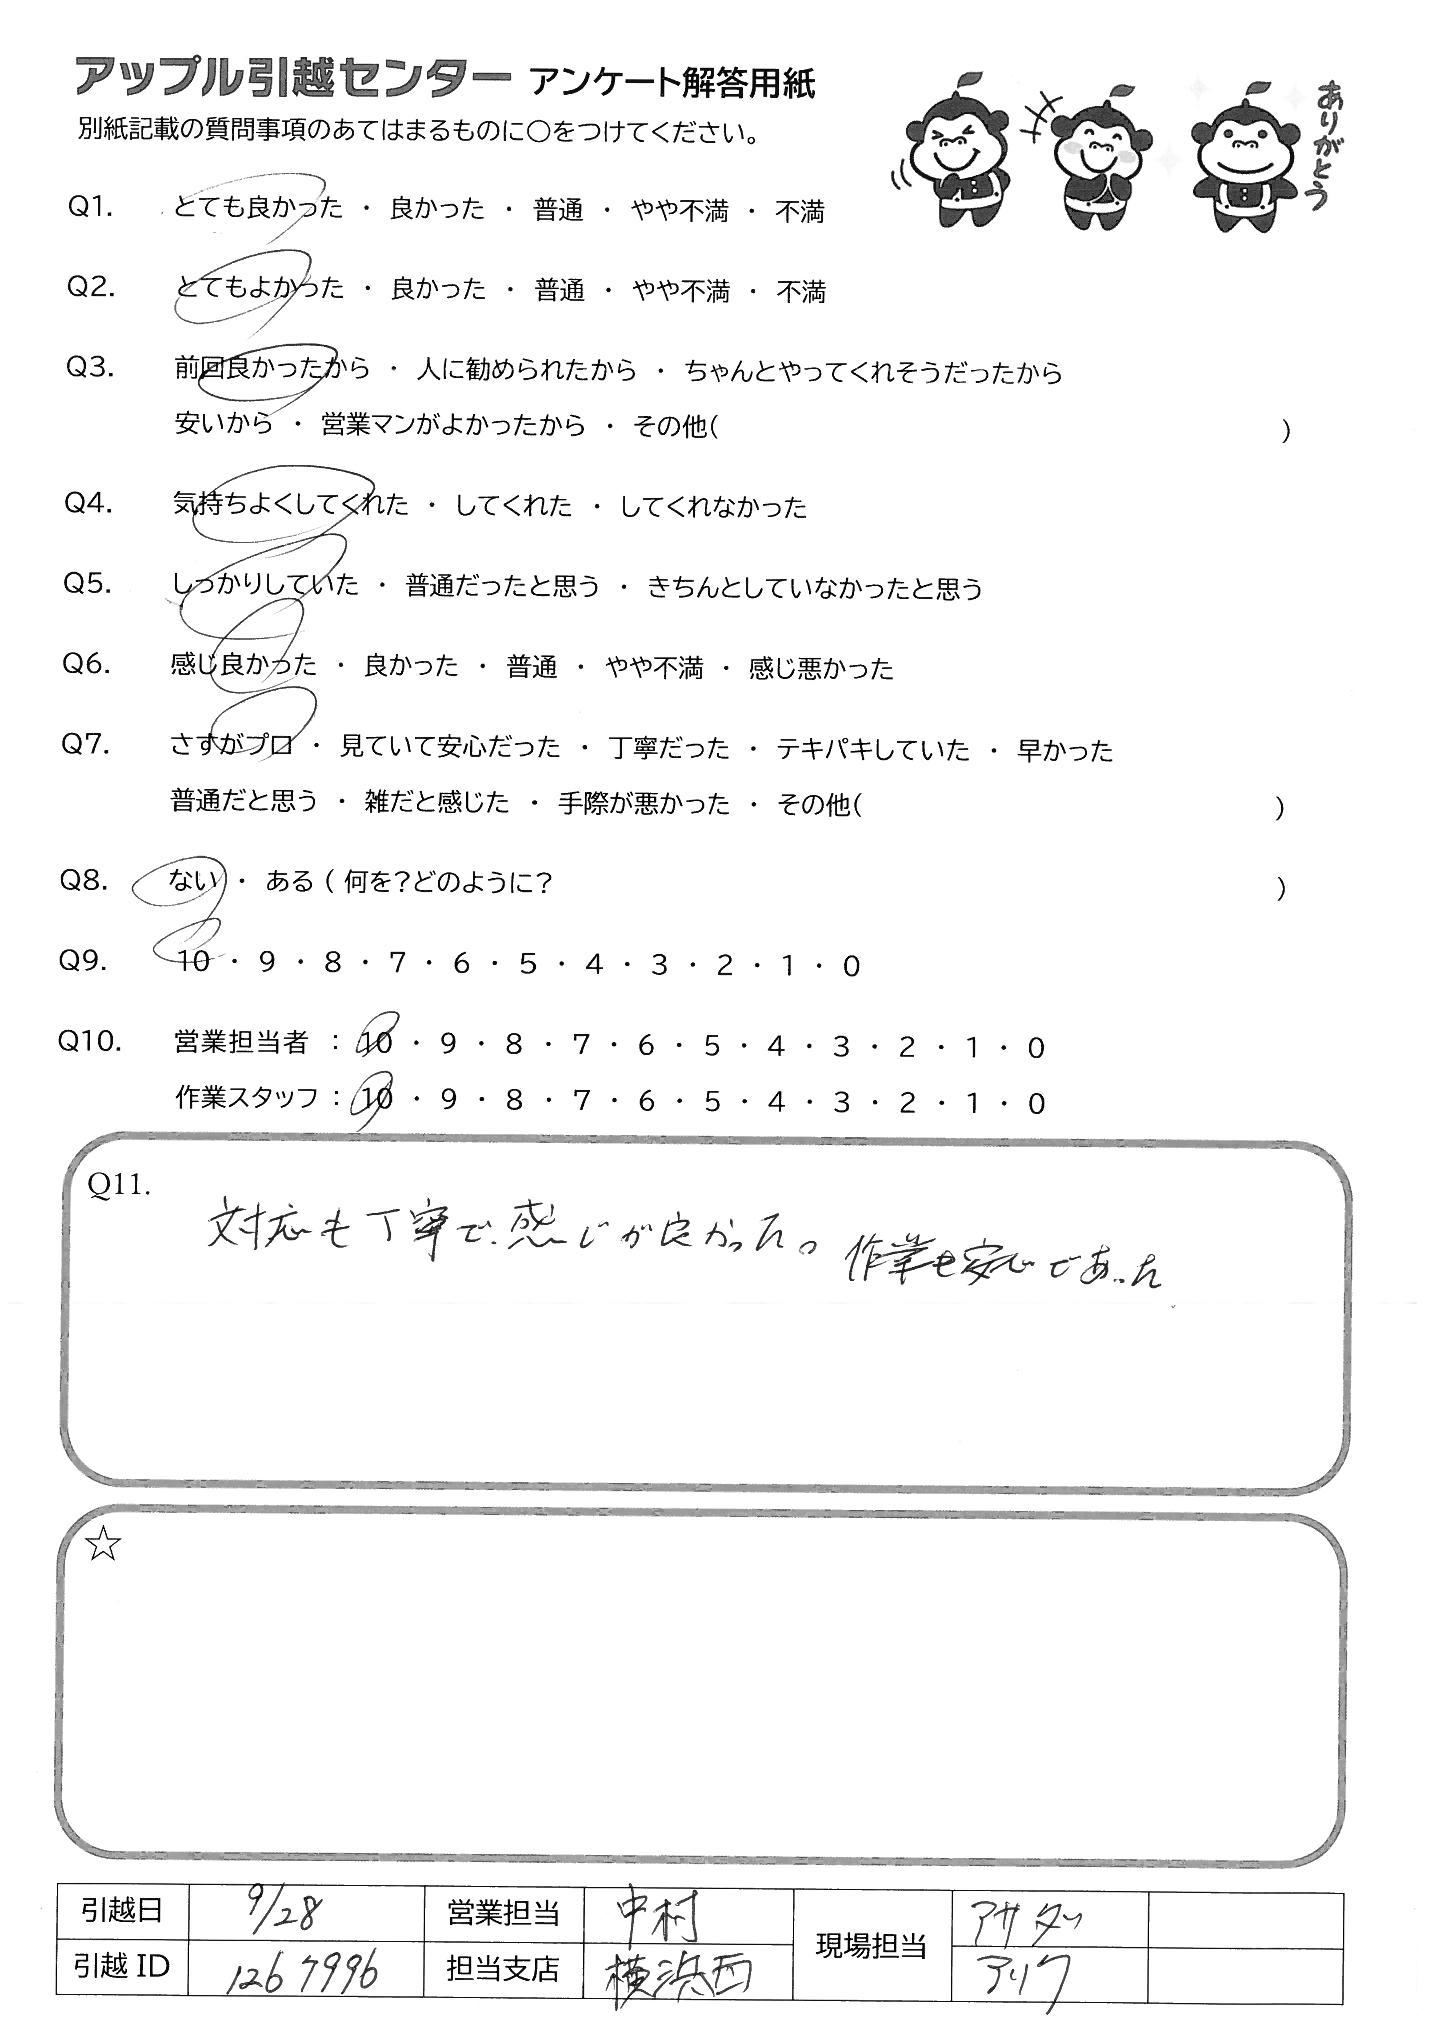 アップル引越センター アンケート解答用紙
別紙記載の質問事項のあてはまるものに○をつけてください。
ありがとう
Q1. とても良かった ・ 良かった ・ 普通 ・ やや不満 ・ 不満
Q2. とてもよかった ・ 良かった ・ 普通 ・ やや不満 ・ 不満
Q3. 前回良かったから ・ 人に勧められたから ・ ちゃんとやってくれそうだったから
安いから ・ 営業マンがよかったから ・ その他( )
Q4. 気持ちよくしてくれた ・ してくれた ・ してくれなかった
Q5. しっかりしていた ・ 普通だったと思う ・ きちんとしていなかったと思う
Q6. 感じ良かった ・ 良かった ・ 普通 ・ やや不満 ・ 感じ悪かった
Q7. さすがプロ ・ 見ていて安心だった ・ 丁寧だった ・ テキパキしていた ・ 早かった
普通だと思う ・ 雑だと感じた ・ 手際が悪かった ・ その他( )
Q8. ない ・ ある ( 何を?どのように? )
Q9. 10 ・ 9 ・ 8 ・ 7 ・ 6 ・ 5 ・ 4 ・ 3 ・ 2 ・ 1 ・ 0
Q10. 営業担当者 : 10 ・ 9 ・ 8 ・ 7 ・ 6 ・ 5 ・ 4 ・ 3 ・ 2 ・ 1 ・ 0
作業スタッフ : 10 ・ 9 ・ 8 ・ 7 ・ 6 ・ 5 ・ 4 ・ 3 ・ 2 ・ 1 ・ 0
Q11.
対応も丁寧で、感じが良かった。作業も安心であった
☆
引越日 9/28 営業担当 中村 現場担当 アサダッ
引越 ID 1267996 担当支店 横浜西 アリフ